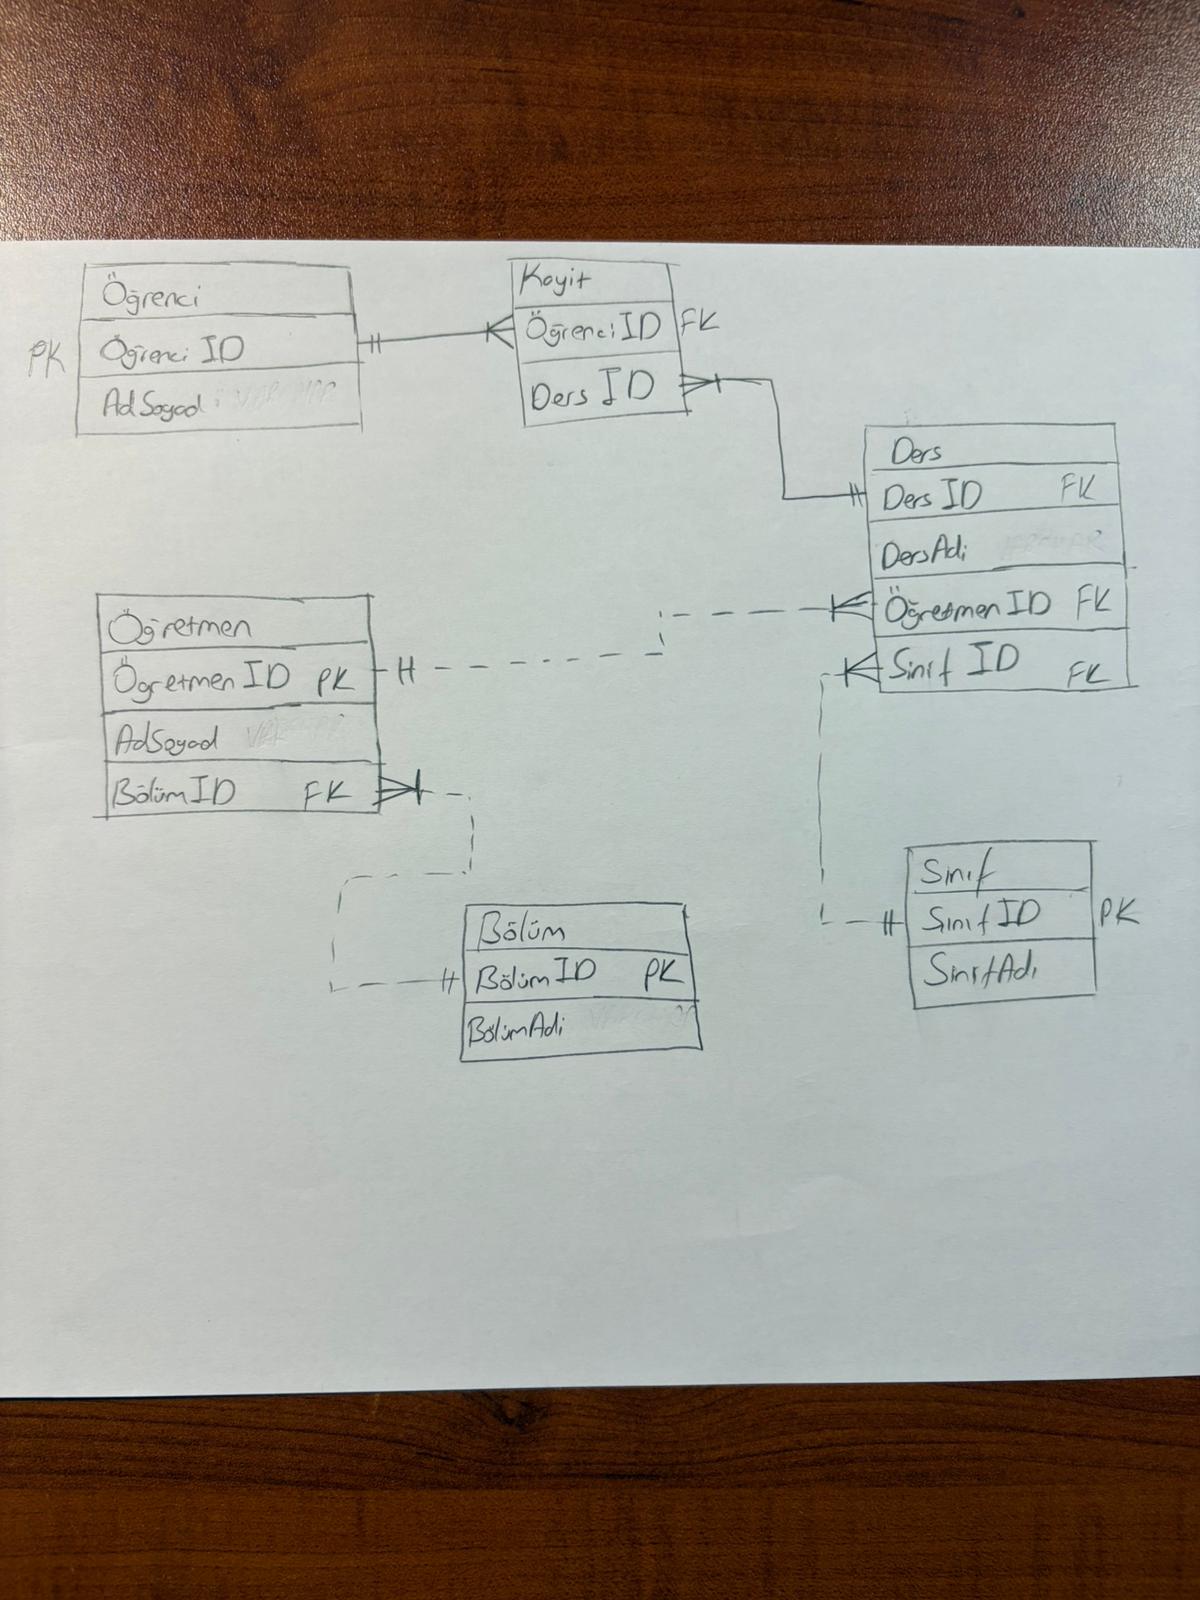 Öğrenci
PK Öğrenci ID
AdSoyad
Kayit
ÖğrenciID FK
Ders ID
Ders
Ders ID FK
DersAdi
Öğretmen ID FK
Sinif ID FK
Öğretmen
Ögretmen ID PK
AdSoyad
BölümID FK
Bölüm
BölümID PK
BölümAdi
Sınıf
SınıfID PK
SınıfAdı